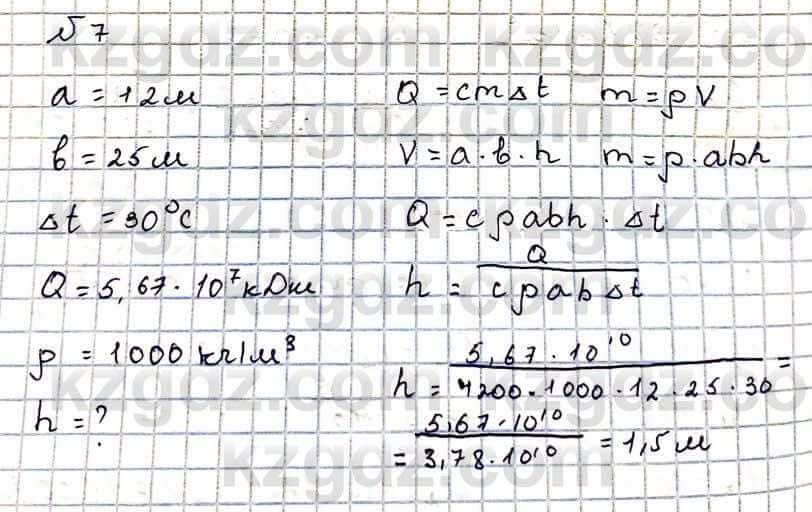 № 7
a = 12 м
в = 25 м
Δt = 30°C
Q = 5,67 · 10⁷ кДж
ρ = 1000 кг/м³
h = ?
Q = cmΔt m = ρV
V = a · в · h m = ρ · aвh
Q = cρaвh · Δt
h = Q / cρaвΔt
h = 5,67 · 10¹⁰ / 4200 · 1000 · 12 · 25 · 30 =
= 5,67 · 10¹⁰ / 3,78 · 10¹⁰ = 1,5 м
kzgdz.com